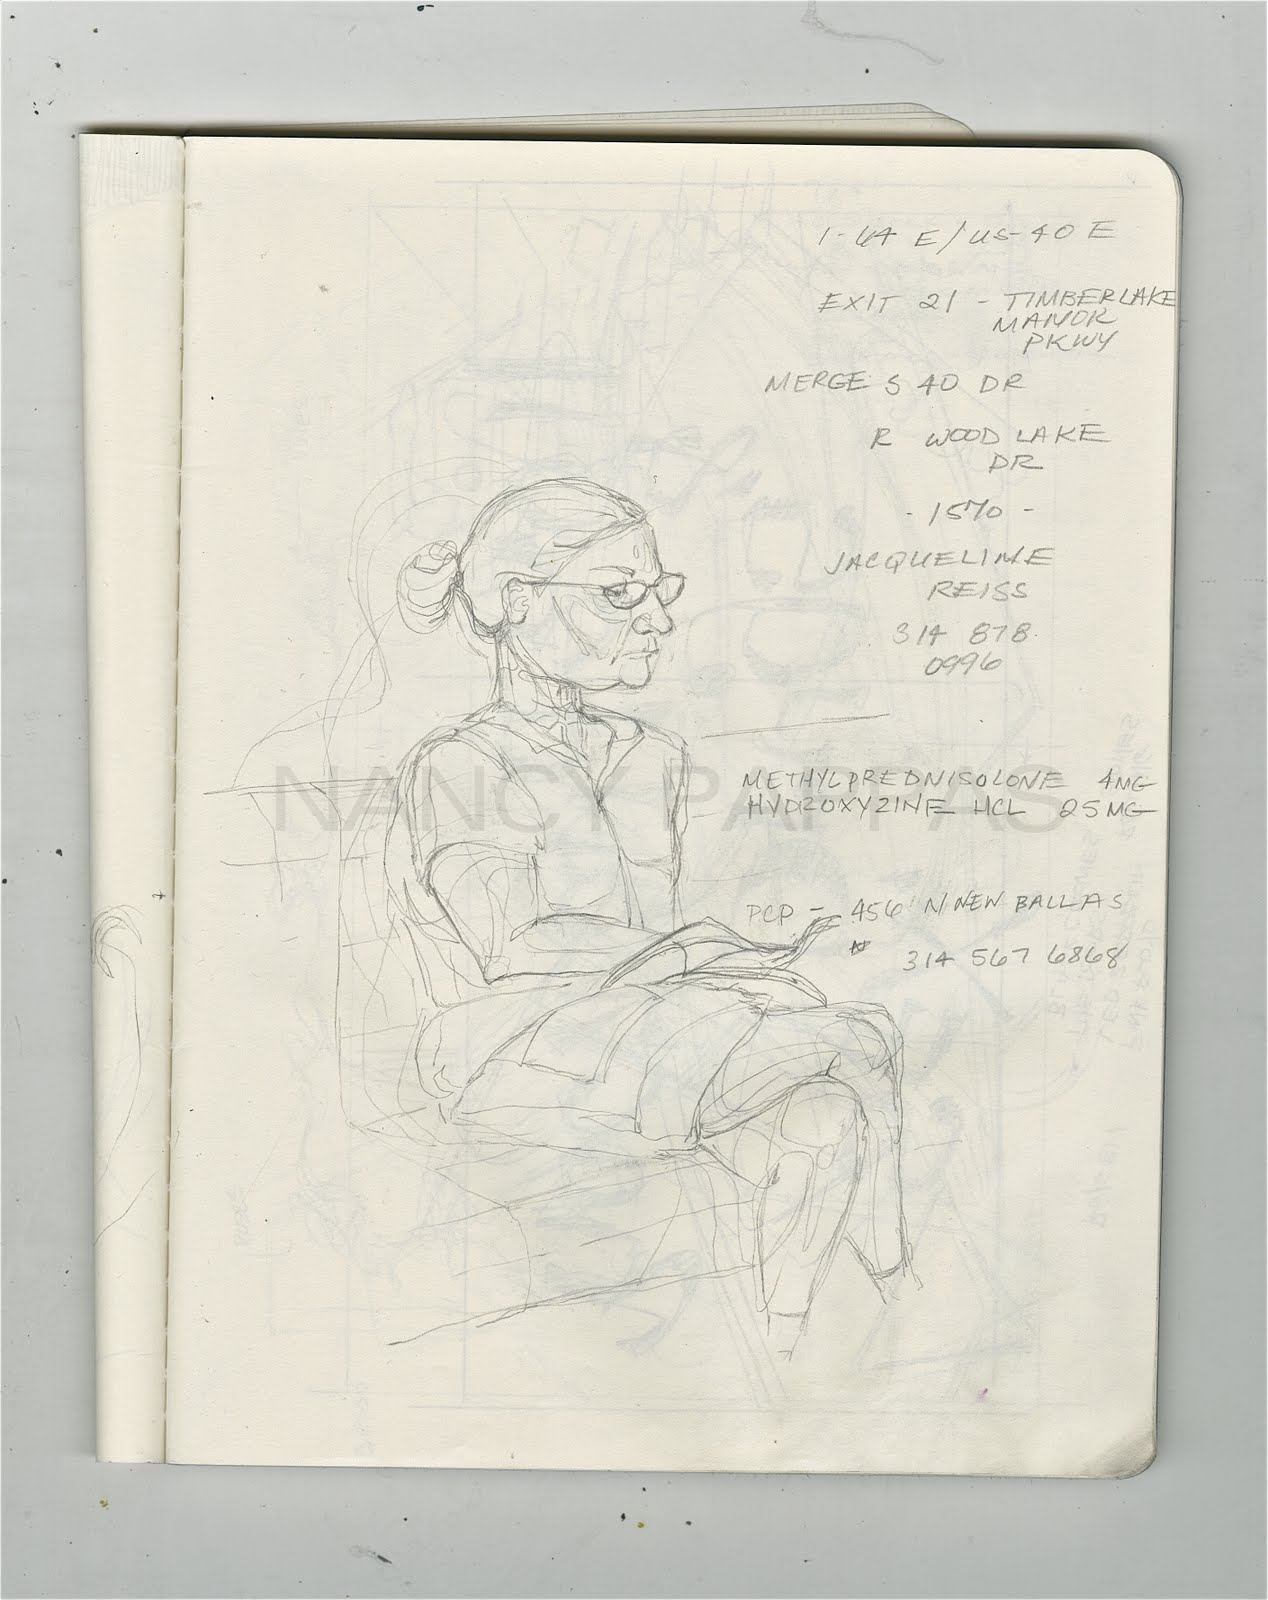 I-64 E/US-40 E
EXIT 21 - TIMBERLAKE
MANOR
PKWY
MERGE S 40 DR
R WOOD LAKE
DR
- 1570 -
JACQUELINE
REISS
314 878
0996
NANCY PAPPAS
METHYLPREDNISOLONE 4MG
HYDROXYZINE HCL 25MG
PCP - 456 N NEW BALLAS
314 567 6868